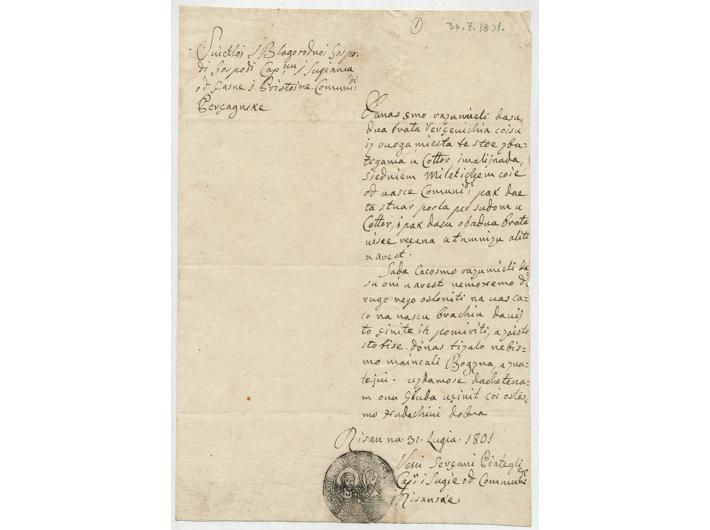 1
30.7.1801.
Suietloi i Blagorodnoi Gospo-
di Gospodi Cap:ni i Sugiama
od Casne i Pristoine Comunidi
Percagnske
Danas smo razumieli dasu
dua brata Verçevichia coisu
iz ovoga miesta ta stoe zbu-
tigama u Cottor, imalijnada,
siedniem Miletichem coie
od vasce Comunidi pak dae
ta stuar posla per sudom u
Cottor, i pak dasu obadua brata
visce recena u tamnizu aliti
u avest.
Sada Cacosmo razumieli da
su oni u avest nemoxemo d-
rugo nego osloniti na vas cac-
o na nascu brachiu da vij
to çinite ih pomiriti, a zaisto
stobise dònas tizalo nebis-
mo maincali Bogzna, a zna-
te jui. uzdamose dachetena-
m ovu gliuba uçinit coi ostas-
mo xudechini dobra
Risan na 31. Lugia. 1801
Vasci Sercani Priategli
Capi i Sugie od Comuni
Risanske